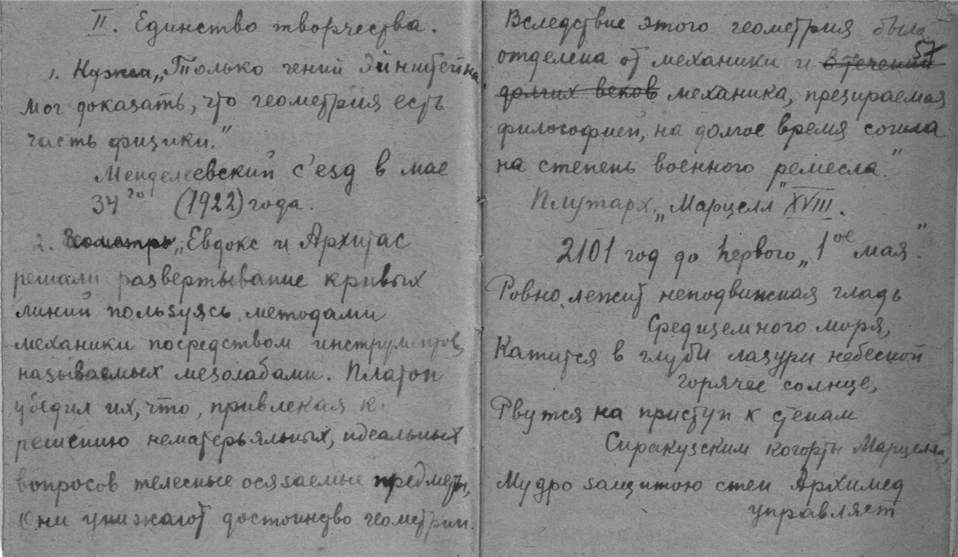 II. Единство творчества.
1. „Только гений Эйнштейна
мог доказать, что геометрия есть
часть физики."
Менделеевский с'езд в мае
34го (1922) года.
2. „Евдокс и Архитас
решали развертывание кривых
линий пользуясь методами
механики посредством инструментов,
называемых мезолабами. Платон
убедил их, что, привлекая к
решению нематерьяльных, идеальных
вопросов телесные осязаемые предметы,
они унижают достоинство геометрии.
57
Вследствие этого геометрия была
отделена от механики и в течении
долгих веков механика, презираемая
философией, на долгое время сошла
на степень военного ремесла."
Плутарх „Марцелл" XVIII.
2101 год до первого „1ое мая."
Ровно лежит неподвижная гладь
Средиземного моря,
Катится в глуби лазури небесной
горячее солнце,
Рвутся на приступ к стенам
Сиракузским когорты Марцелла,
Мудро защитою стен Архимед
управляет